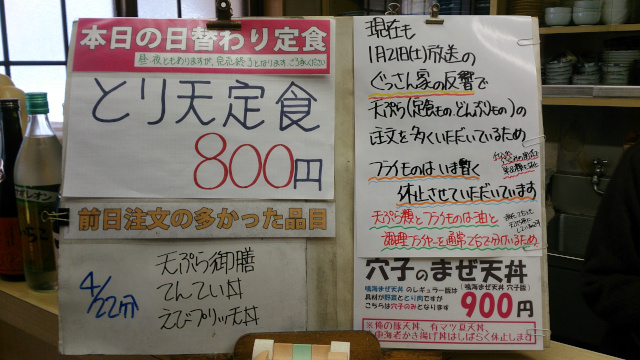 本日の日替わり定食
昼・夜ともありますが、完売終了となります ご了承ください
とり天定食
800円
前日注文の多かった品目
4/22分
天ぷら御膳
てんてい丼
えびプリッモ丼
現在も
1月21日(土)放送の
ぐっさん家の反響で
天ぷら(定食もの、どんぶりもの)の
注文を多くいただいているため
フライものはいま暫く
休止させていただいています
天ぷら類とフライものは油と
調理フライヤーを通常でも分けているため
穴子のまぜ天丼
(鳴海まぜ天丼 穴子版)
鳴海まぜ天丼 のレギュラー版は
具材が野菜ととり肉ですが
こちらは穴子のみとなります
900円
※俺の豚天丼、有マツ夏天丼、
南海老かき揚げ丼はしばらく休止します